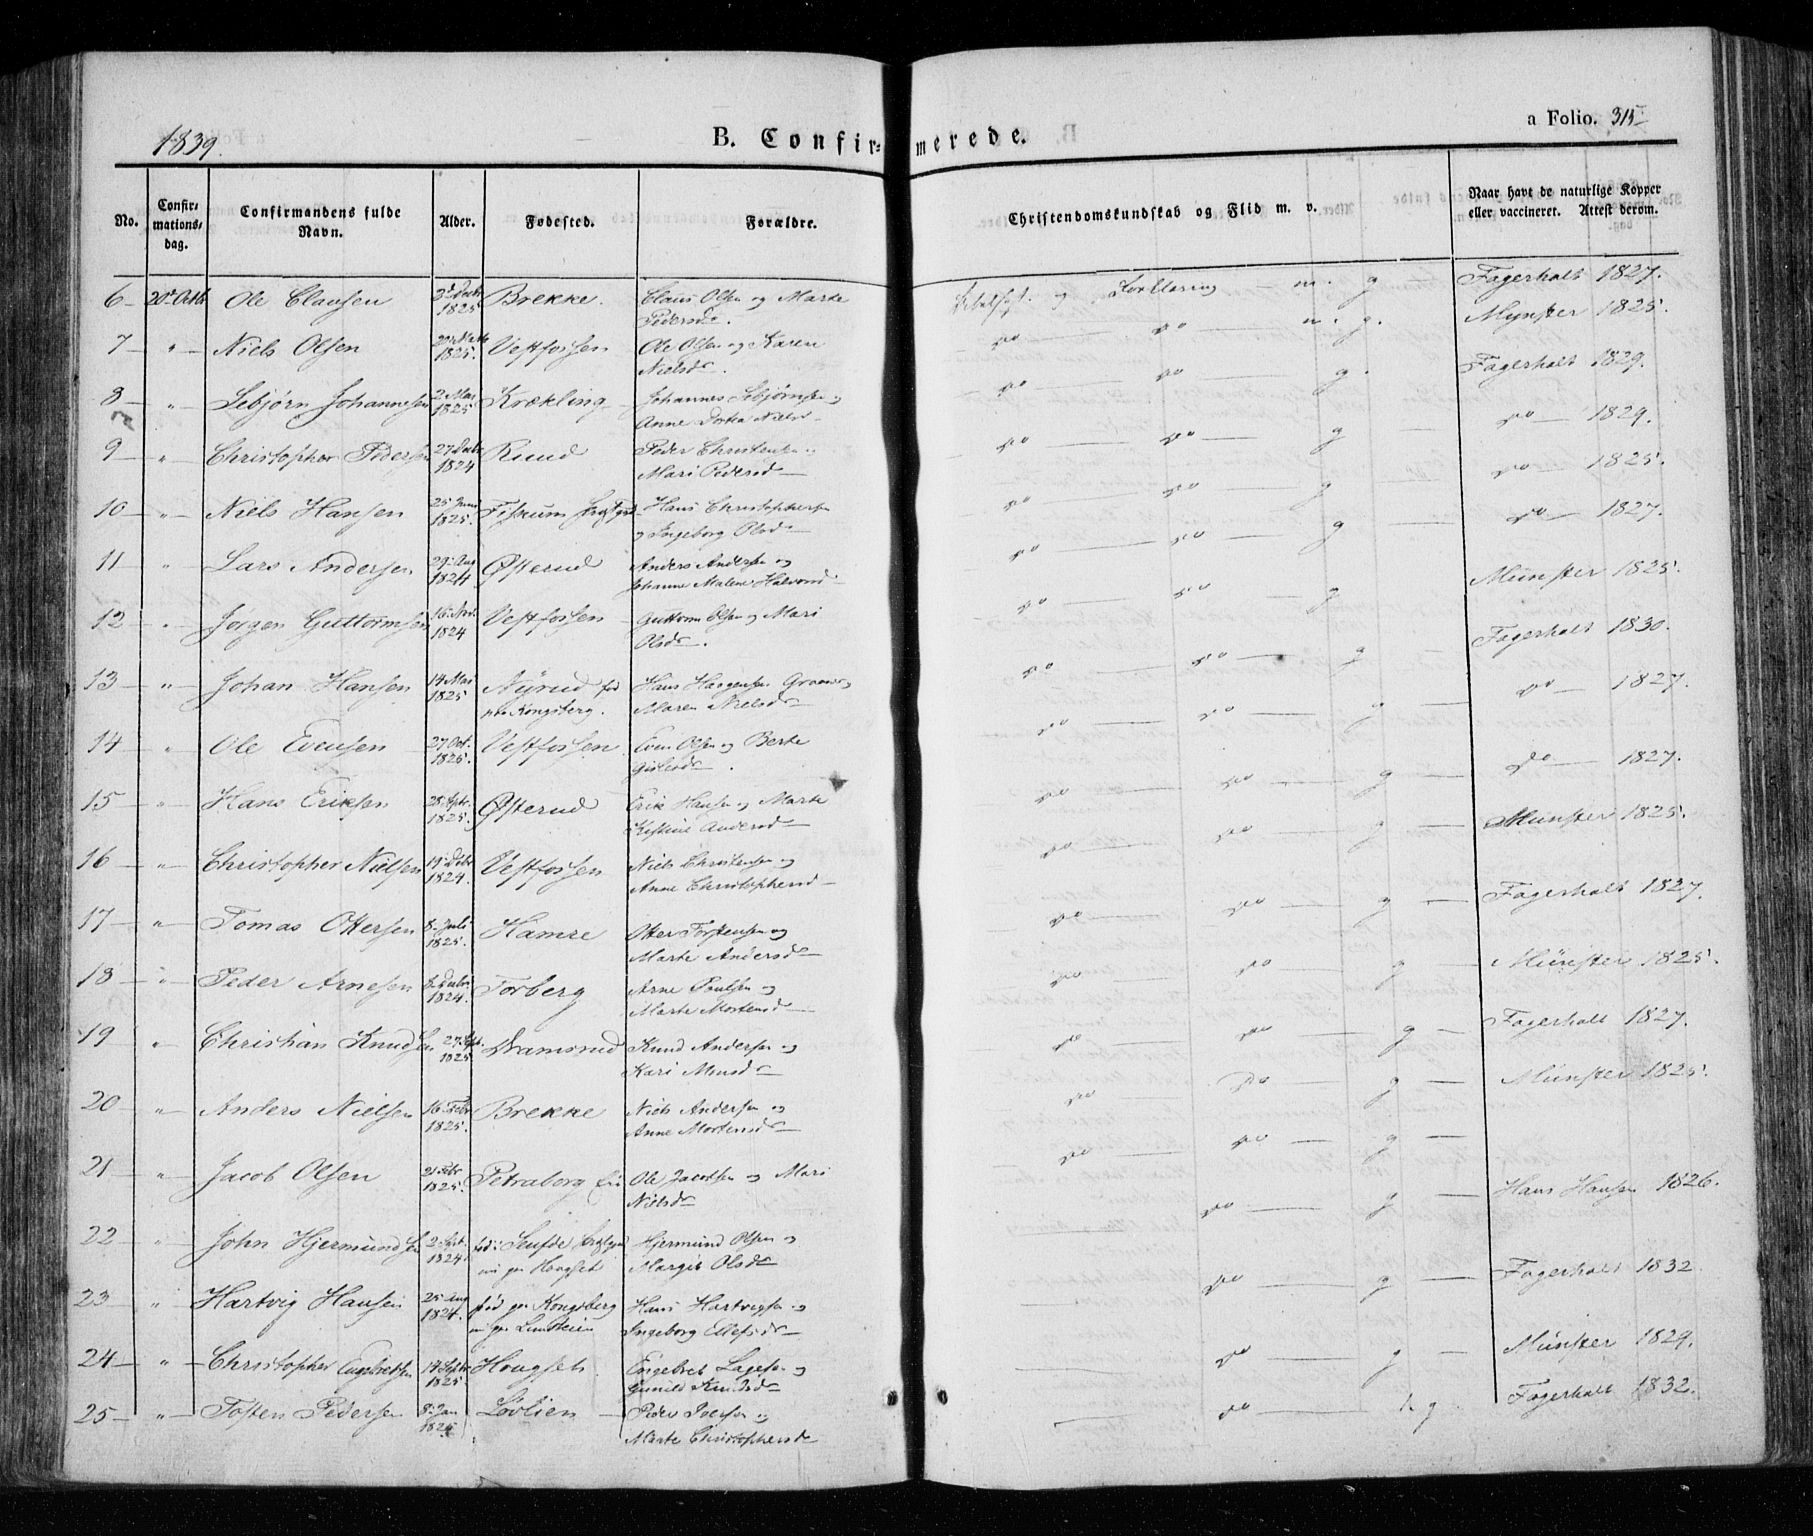 1839.
B. Confir=merede.
a Folio. 315
No.
Confir=mations=dag.
Confirmandens fulde Navn.
Alder.
Fødested.
Forældre.
Christendomskundskab og Flid m. v.
Naar havt de naturlige Kopper eller vaccineret. Attest derom.
6 20de Octb Ole Clausen 1825 Brekke. Claus Olsen og Marte og Forklaring m. g Fagerholt 1827.
Pedersd.
7 " Niels Olsen 1825. Vestfossen Ole Olsen og Karen do do m. g. Mynster 1825.
Nielsd.
8 " Sebjørn Johannesen 2 Mai 1825 Krækling Johannes Sebjørnsen og do do g. Fagerholt 1829.
Anne Nielsd
9 " Christopher Pedersen 27 Decbr 1824 Ruud Peder Christensen og do do g do 1829.
Mari Pedersd
10 " Niels Hansen 25 Juni 1825. Fiskum Hans Christophersen do do g do 1825.
og Ingeborg Olsd
11 " Lars Andersen 29 Aug 1824 Østerud Anders Andersen og do do g do 1827.
Johanne Malene Halvorsd
12 " Jørgen Guttormsen 16 Nov. 1824 Vestfossen Guttorm Olsen og Mari do do g Münster 1825.
Olsd.
13 " Johan Hansen 14 Mai 1825 Hans Haagensen og do do g Fagerholt 1830.
Kongsberg. Maren Nielsd
14 " Ole Evensen 27 Oct. 1825. Vestfossen Even Olsen og Berte do do g do 1827.
15 " Hans Eriksen 28 Sptr. 1825. Østerud Erik Hansen og Marte do do g do 1827.
Kistine Andersd
16 " Christopher Nielsen 19 Decbr 1824. Vestfossen Niels Christensen og do do g Münster 1825.
Anne Christophersd
17 " Tomas Ottersen 8 Juli 1825. Hamre Otter Torstensen og do do g Fagerholt 1827.
Marte Andersd
18 " Peder Arnesen Decbr 1824. Torberg Arne Poulsen og do do g Münster 1825.
Marte Mortensd
19 " Christian Knudsen 27 Spt. 1825 Dramsrud Knud Andersen og do do g Fagerholt 1827.
Kari
20 " Anders Nielsen 16 Febr 1825. Brekke Niels Andersen og do do g Münster 1825.
Anne Mortensd
21 " Jacob Olsen 21 Febr 1825. Petraborg Ole Jacobsen og Mari do do g
Nielsd
22 " John Hjermundsen 2 Spt. 1824 Hjermund Olsen og do g Hans Hansen 1826.
Hougset Margit Olsd
23 " Hartvig Hansen 25 Aug 1824. fød Kongsberg Hans Hartvigsen og do g Fagerholt 1832
Ingeborg Ellefsd
24 " Christopher Engebretsen 17 Septr 1825. Hougset Engebret Lagesen og do g Münster 1829.
Gunild Knudsd
25 " Tosten Pedersen 8 Jan Løvlien Peder og do g Fagerholt 1832.
Marte Christophersd